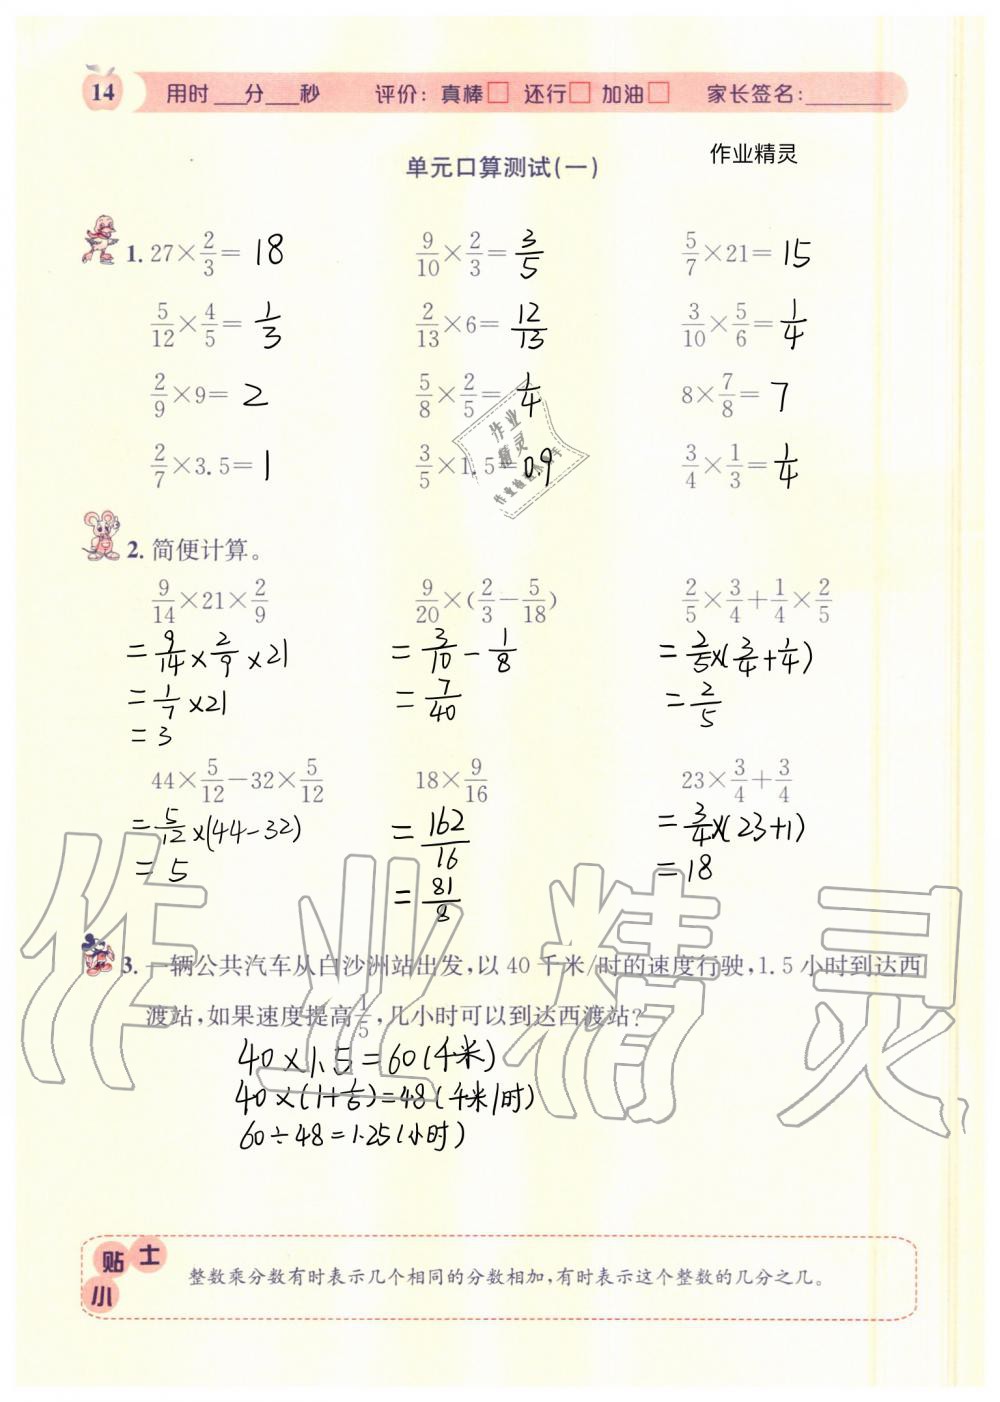 14 用时___分___秒 评价：真棒□ 还行□ 加油□ 家长签名：________
单元口算测试(一) 作业精灵
1. 27×2/3= 18 9/10×2/3= 3/5 5/7×21= 15
5/12×4/5= 1/3 2/13×6= 12/13 3/10×5/6= 1/4
2/9×9= 2 5/8×2/5= 1/4 8×7/8= 7
2/7×3.5= 1 3/5×1.5= 0.9 3/4×1/3= 1/4
2. 简便计算。
9/14×21×2/9 9/20×(2/3−5/18) 2/5×3/4+1/4×2/5
=9/14×2/9×21 =3/10−1/8 =2/5×(3/4+1/4)
=1/7×21 =7/40 =2/5
=3
44×5/12−32×5/12 18×9/16 23×3/4+3/4
=5/12×(44−32) =162/16 =3/4×(23+1)
=5 =81/8 =18
3. 一辆公共汽车从白沙洲站出发，以40千米/时的速度行驶，1.5小时到达西
渡站，如果速度提高1/5，几小时可以到达西渡站？
40×1.5=60(千米)
40×(1+1/5)=48(千米/时)
60÷48=1.25(小时)
小贴士
整数乘分数有时表示几个相同的分数相加，有时表示这个整数的几分之几。
作业精灵
作业精灵